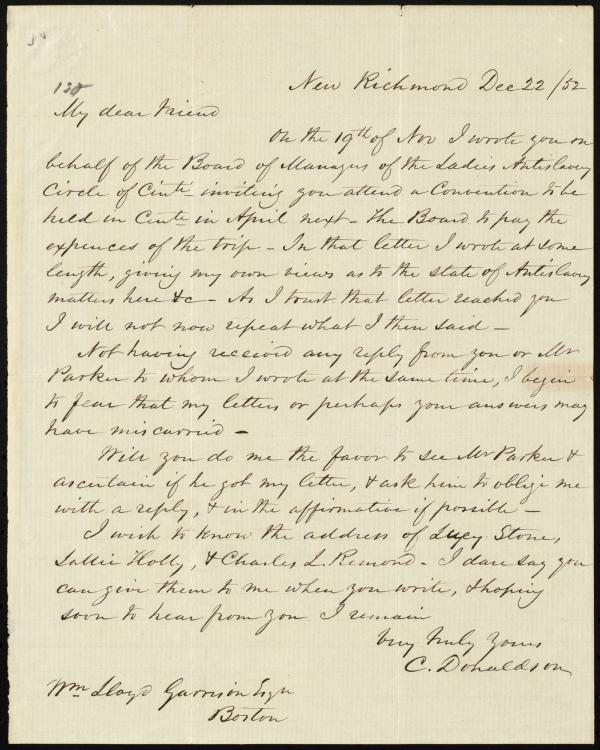 130
New Richmond Dec 22 /52
My dear Friend
On the 19th of Nov I wrote you on
behalf of the Board of Managers of the Ladies Antislavery
Circle of Cinti - inviting you attend a Convention to be
held in Cinti in April next - The Board to pay the
expences of the trip - In that letter I wrote at some
length, giving my own views as to the state of Antislavery
matters here &c - As I trust that letter reached you
I will not now repeat what I then said -
Not having received any reply from you or Mr
Parker to whom I wrote at the same time, I begin
to fear that my letters or perhaps your answers may
have miscarried -
Will you do me the favor to see Mr Parker &
ascertain if he got my letter, & ask him to oblige me
with a reply, & in the affirmative if possible -
I wish to know the address of Lucy Stone,
Sallie Holly, & Charles L. Remond - I dare say you
can give them to me when you write, & hoping
soon to hear from you I remain
Very truly yours
C. Donaldson
Wm Lloyd Garrison Esqr
Boston